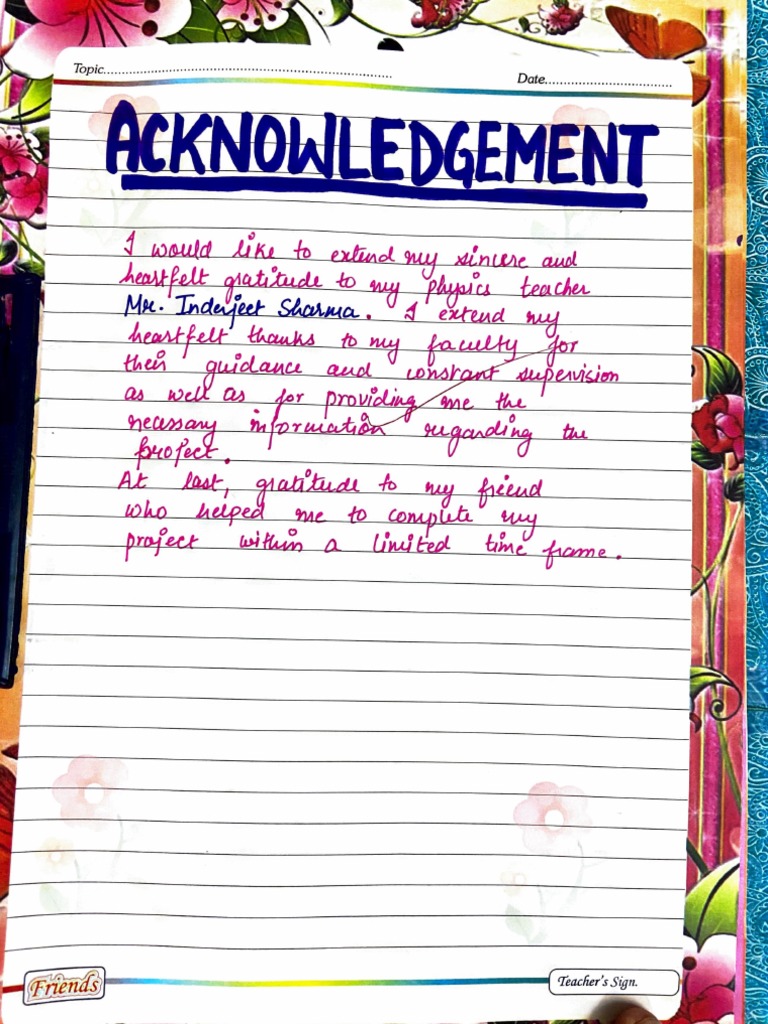 Topic............................................................................
Date...................................
ACKNOWLEDGEMENT
I would like to extend my sincere and
heartfelt gratitude to my physics teacher
Mr. Inderjeet Sharma. I extend my
heartfelt thanks to my faculty for
their guidance and constant supervision
as well as for providing me the
necessary information regarding the
project.
At last, gratitude to my friend
who helped me to complete my
project within a limited time frame.
Friends
Teacher's Sign.